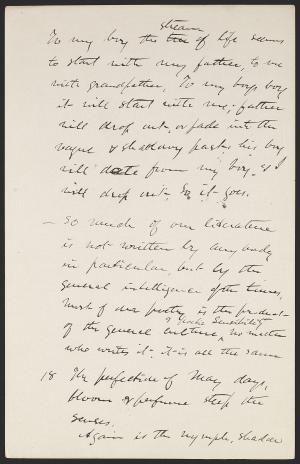 stream
To my boy the tree of life seems
to start with my father, to me
with grandfather. To my boys boy
it will start with me; father
will drop out, or fade into the
vague & shadowy past; his boy
will date from my boy, & I
will drop out. So it goes.
— So much of our literature
is not written by any body
in particular, but by the
general intelligence of the times,
Most of our poetry is the product
& poetic Sensibility
of the general culture, no matter
who writes it. It is all the same
18 The perfection of May days,
bloom & perfume steep the
senses.
Again is the nymph, shadow